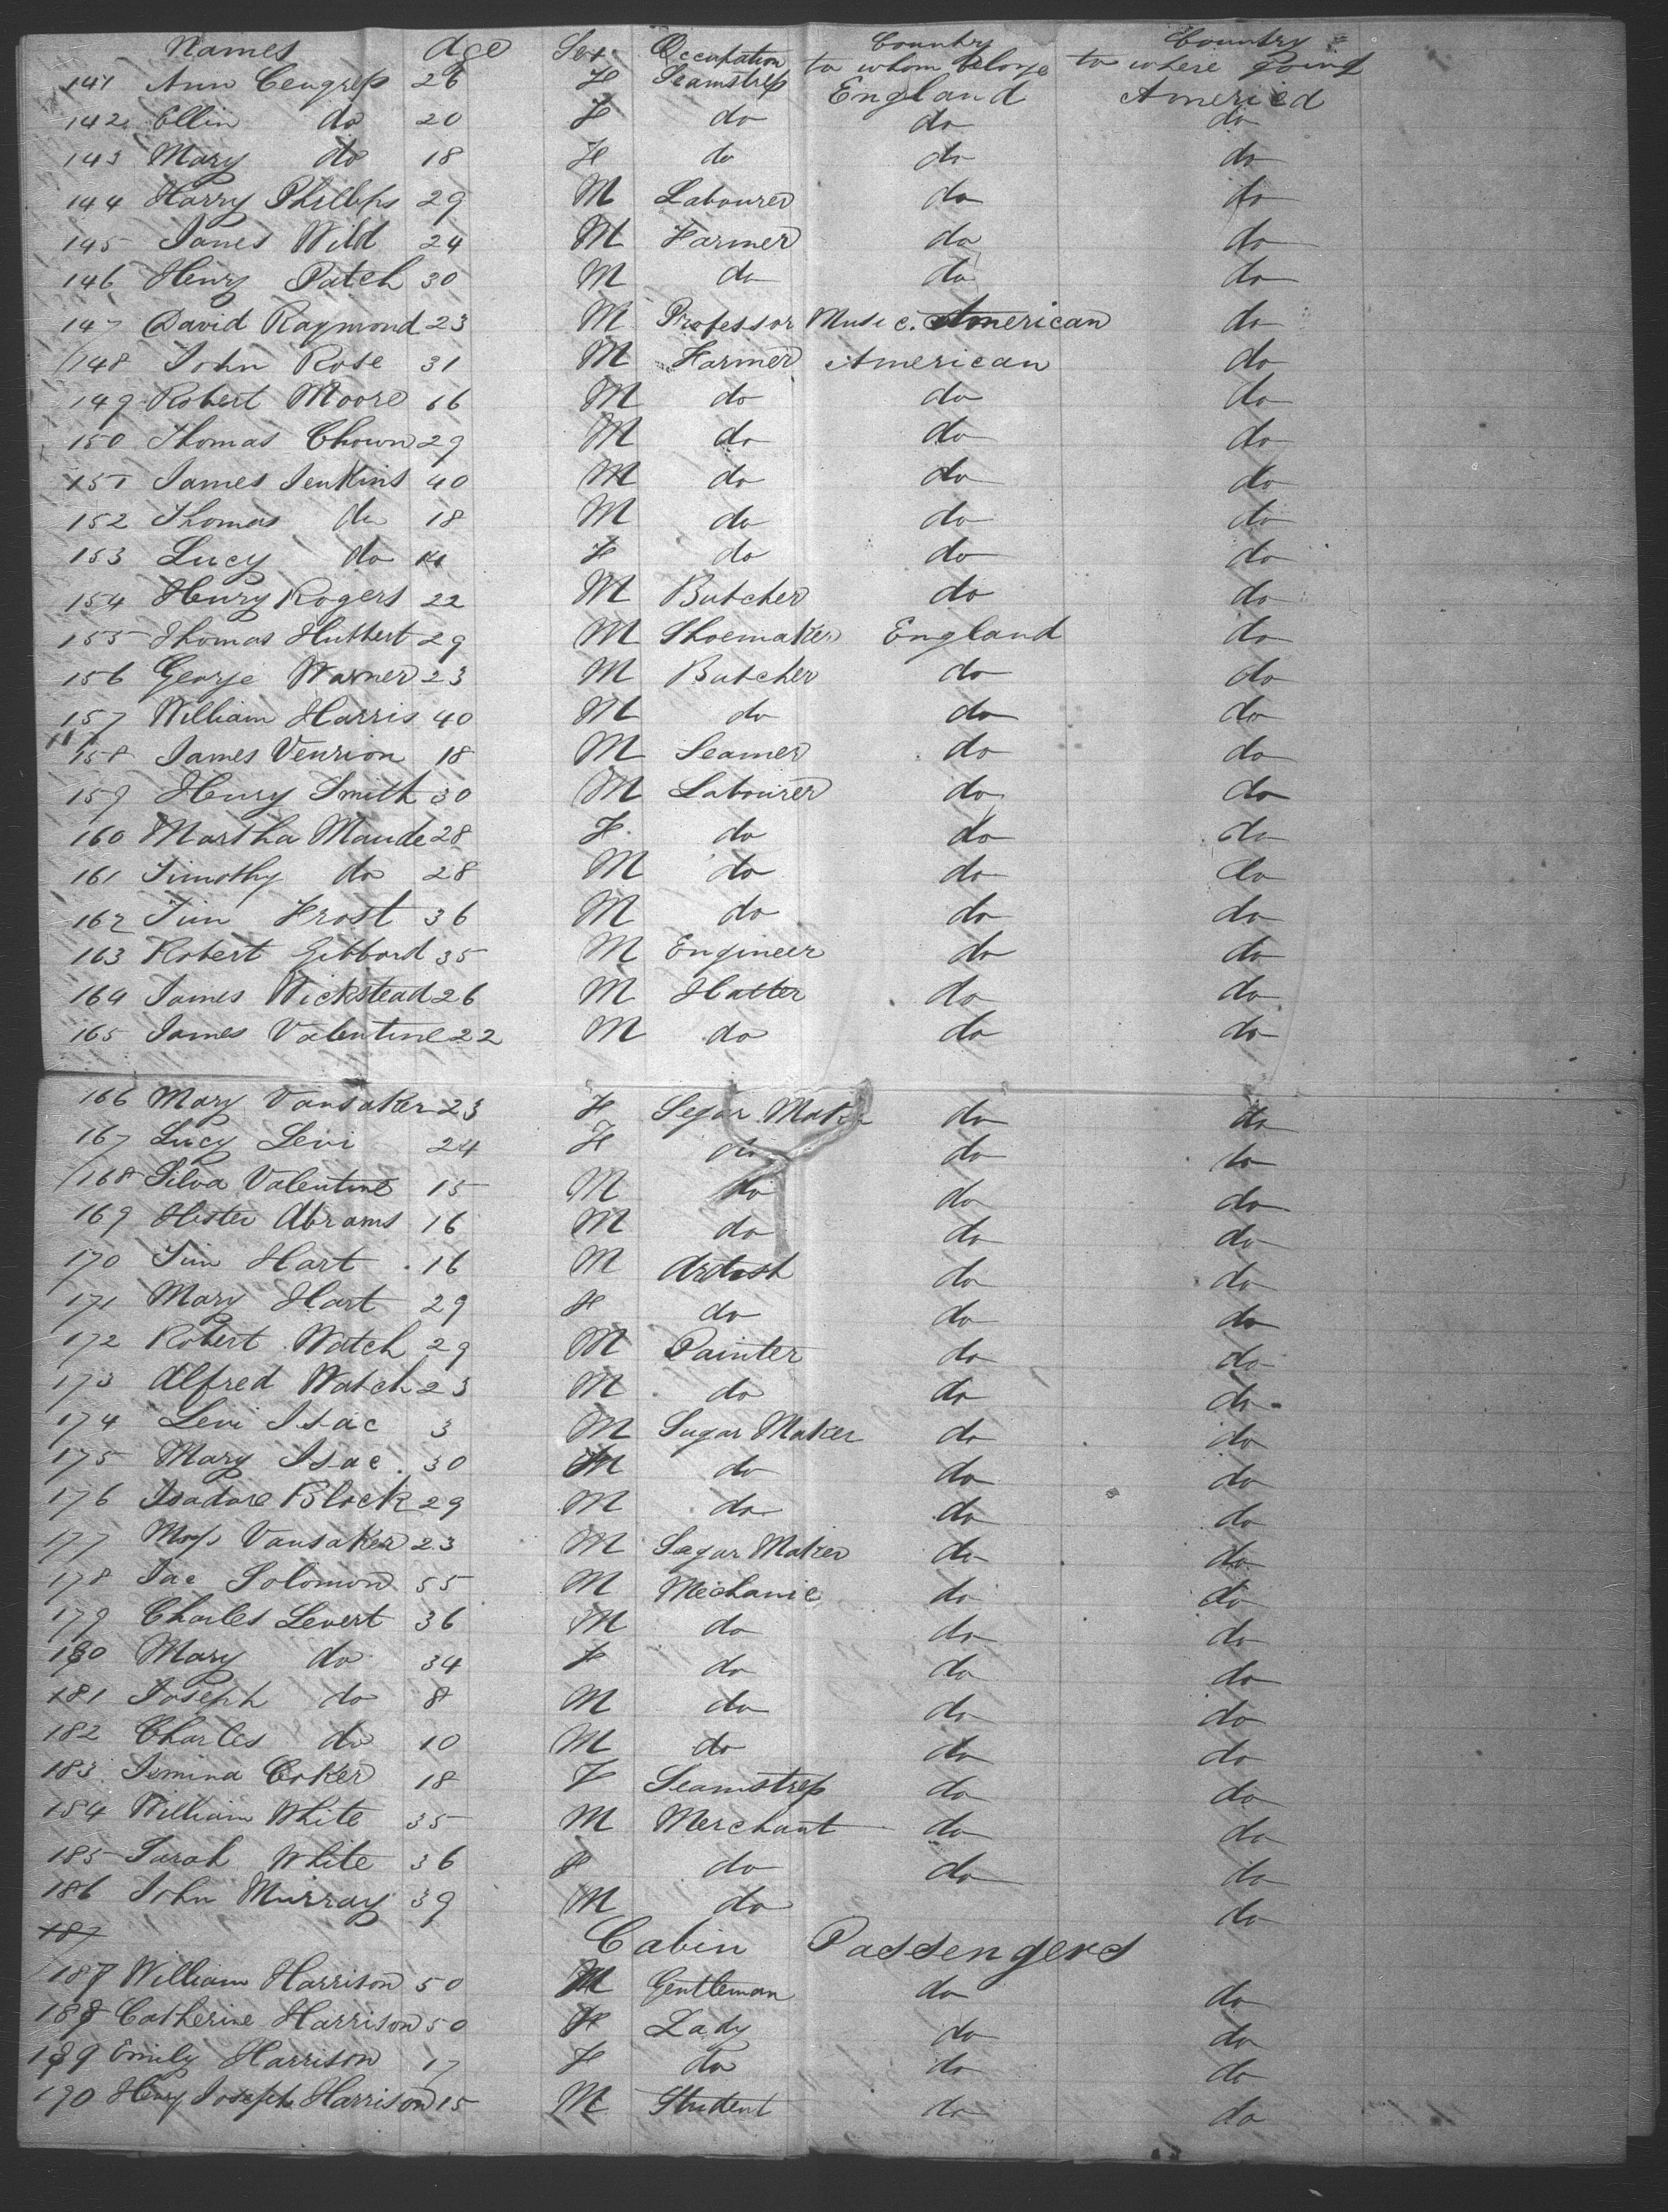 Names Age Sex Occupation Country to whom belonge Country to where going
141 Ann 26 F Seamstress England America
142 Ellin do 20 F do do do
143 Mary do 18 F do do do
144 Harry Phillips 29 M Labourer do do
145 James Wild 24 M Farmer do do
146 Henry Patch 30 M do do do
147 David Raymond 23 M Professor Music. American do
148 John Rose 31 M Farmer American do
149 Robert Moore 66 M do do do
150 Thomas Chown 29 M do do do
151 James Jenkins 40 M do do do
152 Thomas do 18 M do do do
153 Lucy do F do do do
154 Henry Rogers 22 M Butcher do do
155 Thomas Hubbert 29 M Shoemaker England do
156 George Warner 23 M Butcher do do
157 William Harris 40 M do do do
158 James 18 M Seamer do do
159 Henry Smith 30 M Labourer do do
160 Martha Maude 28 F do do do
161 Timothy do 28 M do do do
162 Jim Frost 36 M do do do
163 Robert Gibbord 35 M Engineer do do
164 James Wickstead 26 M Hatter do do
165 James Valentine 22 M do do do
166 Mary Vansaker 23 F Segar Maker do do
167 Lucy Levi 24 F do do do
168 Silva Valentine 15 M do do do
169 Hester Abrams 16 M do do do
170 Jim Hart 16 M Artist do do
171 Mary Hart 29 F do do do
172 Robert Watch 29 M Painter do do
173 Alfred Watch 23 M do do do
174 Levi Isac 3 M Sugar Maker do do
175 Mary Isac 30 do do do
176 Isadore Block 29 M do do do
177 Moss Vansaker 23 M Segar Maker do do
178 Jac Solomon 55 M Mechanic do do
179 Charles Levert 36 M do do do
180 Mary do 34 F do do do
181 Joseph do 8 M do do do
182 Charles do 10 M do do do
183 Jemina Coker 18 F Seamstress do do
184 William White 35 M Merchant do do
185 Sarah White 36 F do do do
186 John Murray 39 M do do
187
Cabin Passengers
187 William Harrison 50 M Gentleman do do
188 Catherine Harrison 50 F Lady do do
189 Emily Harrison 17 F do do do
190 Henry Joseph Harrison 15 M Student do do